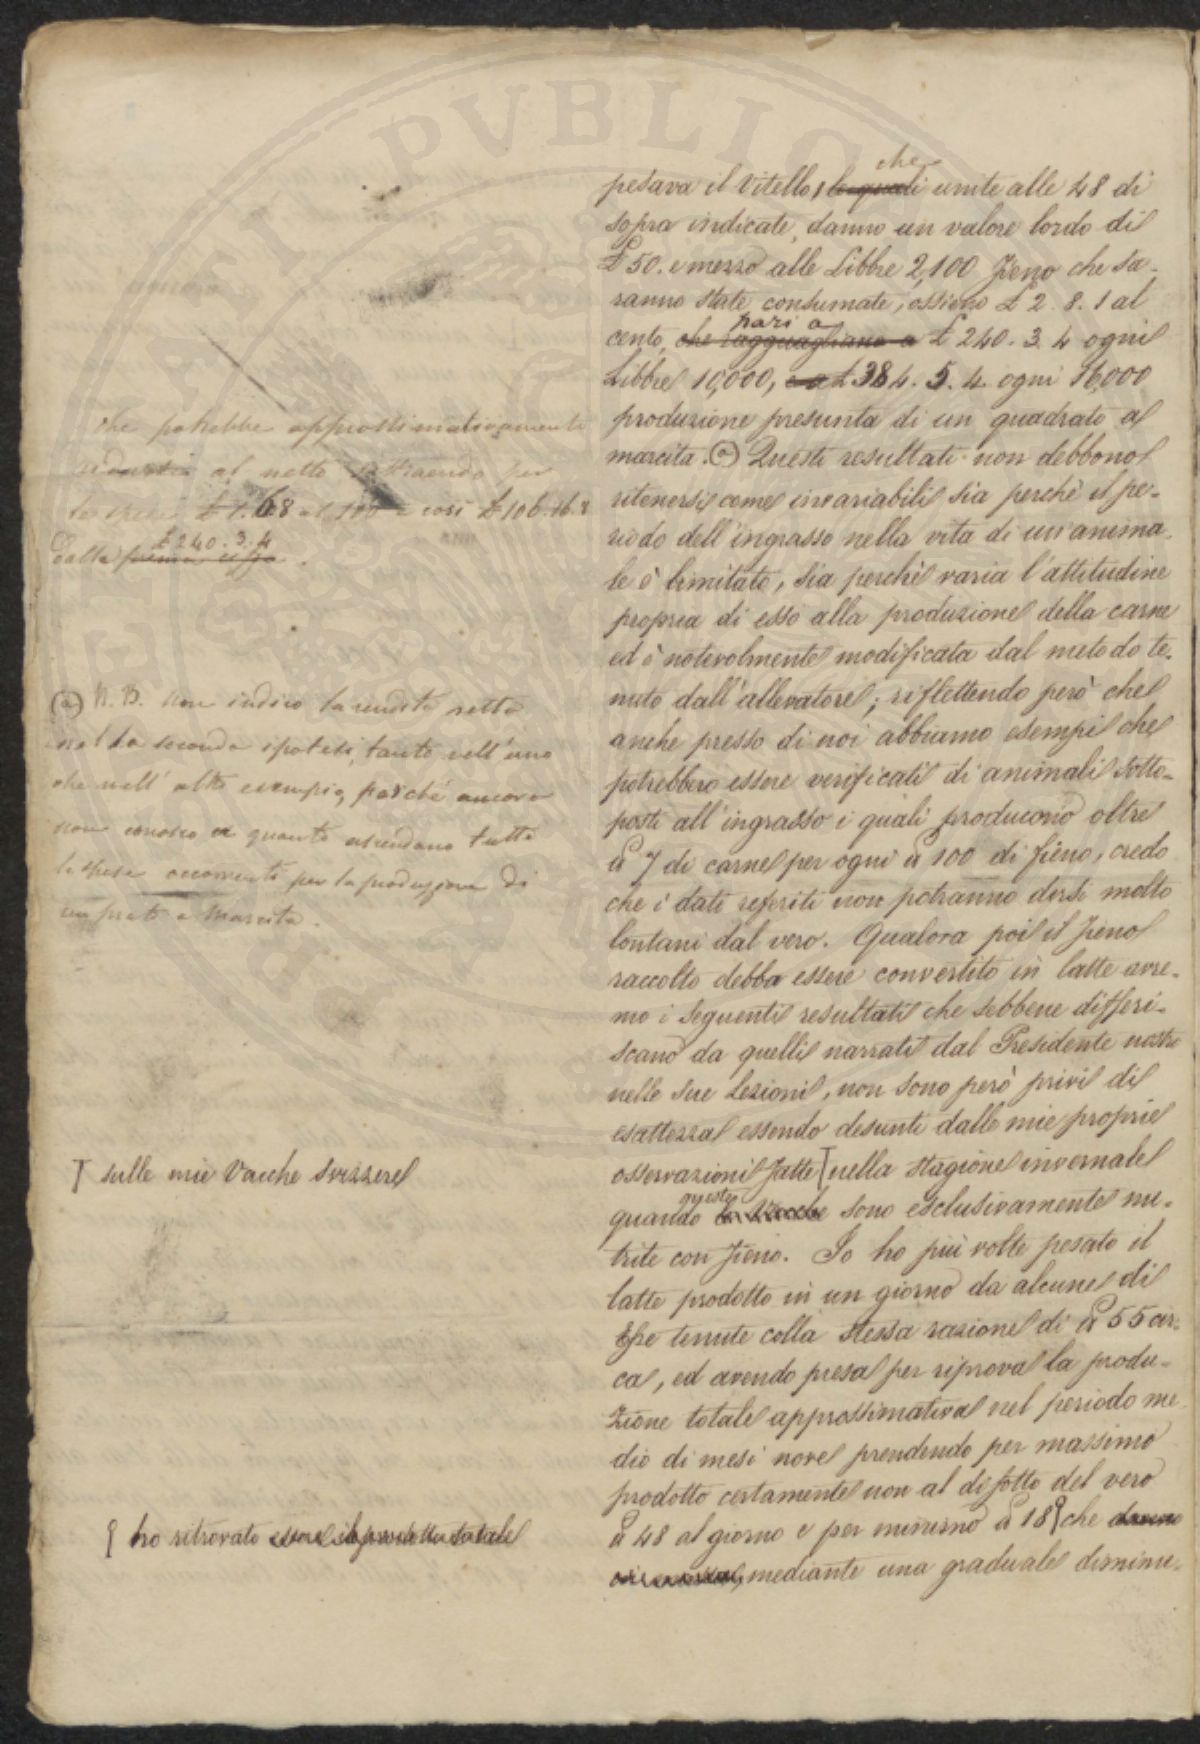 che
pesava il Vitello, le quali unite alle 48 di
sopra indicate, danno un valore lordo di
£ 50. e mezzo alle Libbre 2,100 Fieno che sa-
ranno state consumate, ossieno £ 2. 8. 1 al
pari a
cento, che ragguagliano a £ 240. 3. 4 ogni
Libbre 10,000, e a £ 384. 5. 4. ogni 16,000
produzione presunta di un quadrato a
marcita. (a) Questi resultati non debbono
ritenersi come invariabili sia perchè il pe-
riodo dell'ingrasso nella vita di un anima-
le è limitato, sia perchè varia l'attitudine
propria di esso alla produzione della carne
ed è notevolmente modificata dal metodo te-
nuto dall'allevatore; riflettendo però che
anche presso di noi abbiamo esempi che
potrebbero essere verificati di animali sotto-
posti all'ingrasso i quali producono oltre
a 7 di carne per ogni 100 di fieno, credo
che i dati referiti non potranno dirsi molto
lontani dal vero. Qualora poi il Fieno
raccolto debba essere convertito in latte avre-
mo i seguenti resultati che sebbene differi-
scano da quelli narrati dal Presidente nostro
nelle sue Lezioni, non sono però privi di
esattezza essendo desunti dalle mie proprie
osservazioni fatte nella stagione invernale
queste
quando le Vacche sono esclusivamente nu-
trite con Fieno. Io ho più volte pesato il
latte prodotto in un giorno da alcune di
Esse tenute colla stessa razione di 55 cir-
ca, ed avendo presa per riprova la produ-
zione totale approssimativa nel periodo me-
dio di mesi nove prendendo per massimo
prodotto certamente non al disotto del vero
48 al giorno e per minimo 18 che danno
mediante una graduale diminu-
che potrebbe approssimativamente
ridursi al netto sottraendo per
le spese £ 1. 68 al 100 e così £ 106. 16. 8
£ 240. 3. 4
dalla prima cifra.
(a) N. B. Non indico la rendita netta
nella seconda ipotesi, tanto nell'uno
che nell'altro esempio, perché ancora
non conosco a quanto ascendano tutte
le spese occorrenti per la produzione di
un prato a Marcita.
sulle mie Vacche Svizzere
ho ritrovato essere il prodotto totale